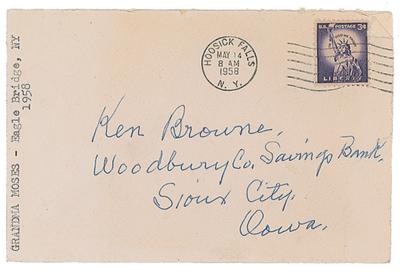 HOOSICK FALLS
MAY 14
8 AM
1958
N. Y.
U.S. POSTAGE 3¢
LIBERTY
GRANDMA MOSES - Eagle Bridge, NY
1958
Ken Browne,
Woodbury Co. Savings Bank,
Sioux City.
Iowa.